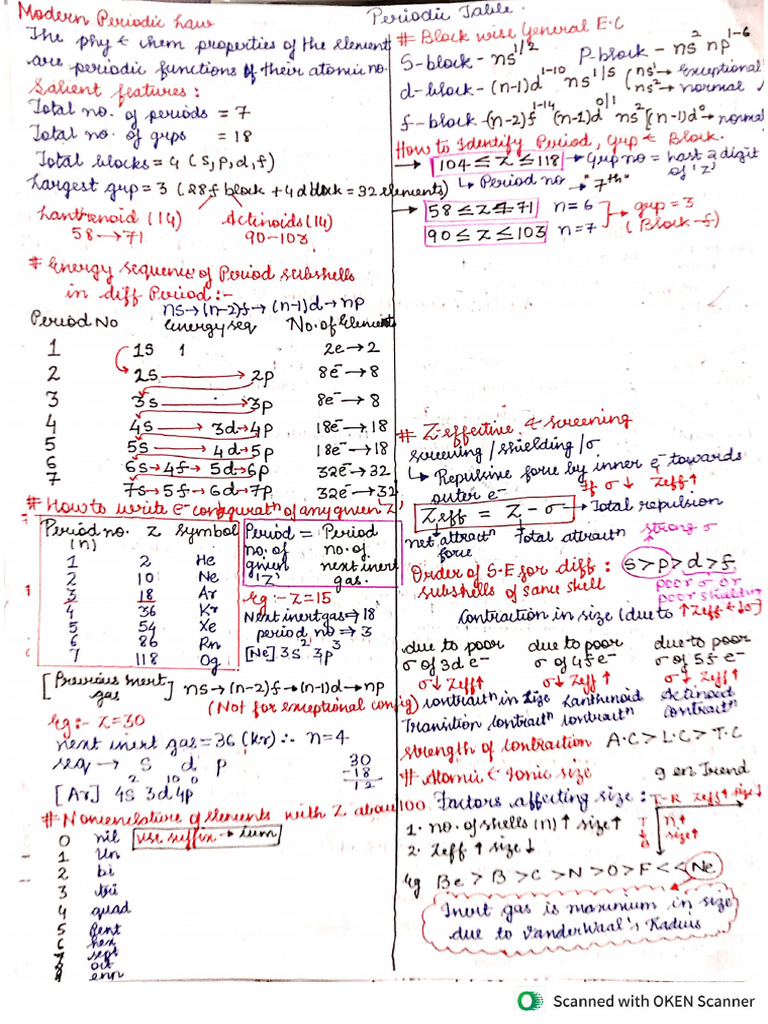 Periodic Table.
Modern Periodic Law
The phy & chem properties of the element
are periodic functions of their atomic no.
Salient features :
Total no. of periods = 7
Total no. of grps = 18
Total blocks = 4 (s, p, d, f)
Largest grp = 3 (28 f block + 4 d block = 32 elements)
Lanthenoid (14) Actinoids (14)
58 → 71 90 - 103
# Energy sequence of Period subshells
in diff Period :-
ns → (n-2)f → (n-1)d → np
Period No energy seq No. of Element
1 1s 1 2e → 2
2 2s → 2p 8e⁻ → 8
3 3s → 3p 8e⁻ → 8
4 4s → 3d → 4p 18e⁻ → 18
5 5s → 4d → 5p 18e⁻ → 18
6 6s → 4f → 5d → 6p 32e⁻ → 32
7 7s → 5f → 6d → 7p 32e⁻ → 32
# How to write e⁻ configuratn of any given Z
Period no. Z Symbol
(n)
1 2 He
2 10 Ne
3 18 Ar
4 36 Kr
5 54 Xe
6 86 Rn
7 118 Og
Period = Period
no. of no. of
given next inert
'Z' gas.
eg :- Z = 15
Next inert gas ⇒ 18
period no ⇒ 3
[Ne] 3s² 3p³
[Previous inert gas] ns → (n-2)f → (n-1)d → np
(Not for exceptional config)
eg :- Z = 30
next inert gas = 36 (Kr) ∴ n = 4
seq → s d p
30
-18
12
[Ar] 4s² 3d¹⁰ 4p⁰
# Nomenclature of elements with Z above 100
0 nil use suffix → ium
1 Un
2 bi
3 tri
4 quad
5 Pent
6 hex
7 sept
8 oct
enn
# Block wise General E.C
S-block - ns¹/² P-block - ns² np¹⁻⁶
d-block - (n-1)d¹⁻¹⁰ ns¹/² (ns¹ → Exceptional
ns² → normal
f-block - (n-2)f¹⁻¹⁴ (n-1)d⁰/¹ ns² [(n-1)d⁰ → normal
How to Identify Period, Grp & Block.
→ 104 ≤ Z ≤ 118 → Grp no = last 2 digit
of 'Z'
↳ Period no → "7th"
→ 58 ≤ Z ≤ 71 n = 6 → grp = 3
90 ≤ Z ≤ 103 n = 7 (Block-f)
# Z-effective & screening
screening / shielding / σ
↳ Repulsive force by inner e⁻ towards
outer e⁻ If σ ↓ Zeff ↑
Zeff = Z - σ → Total repulsion
net attractn force Total attractn strong σ
Order of S.E for diff : s > p > d > f
subshells of same shell poor σ or
poor shielding
Contraction in size (due to ↑ Zeff & ↓ σ)
due to poor due to poor due to poor
σ of 3d e⁻ σ of 4f e⁻ σ of 5f e⁻
σ ↓ Zeff ↑ σ ↓ Zeff ↑ σ ↓ Zeff ↑
contractn in size Lanthenoid Actinoid
Transition contractn contractn contractn
Strength of contraction A.C > L.C > T.C
# Atomic & Ionic size
g en Trend
Factors affecting size : L-R Zeff ↑ size ↓
1. no. of shells (n) ↑ size ↑
T n ↑
B size ↑
2. Zeff ↑ size ↓
eg Be > B > C > N > O > F << Ne
Inert gas is maximum in size
due to VanderWaal's Radius
Scanned with OKEN Scanner